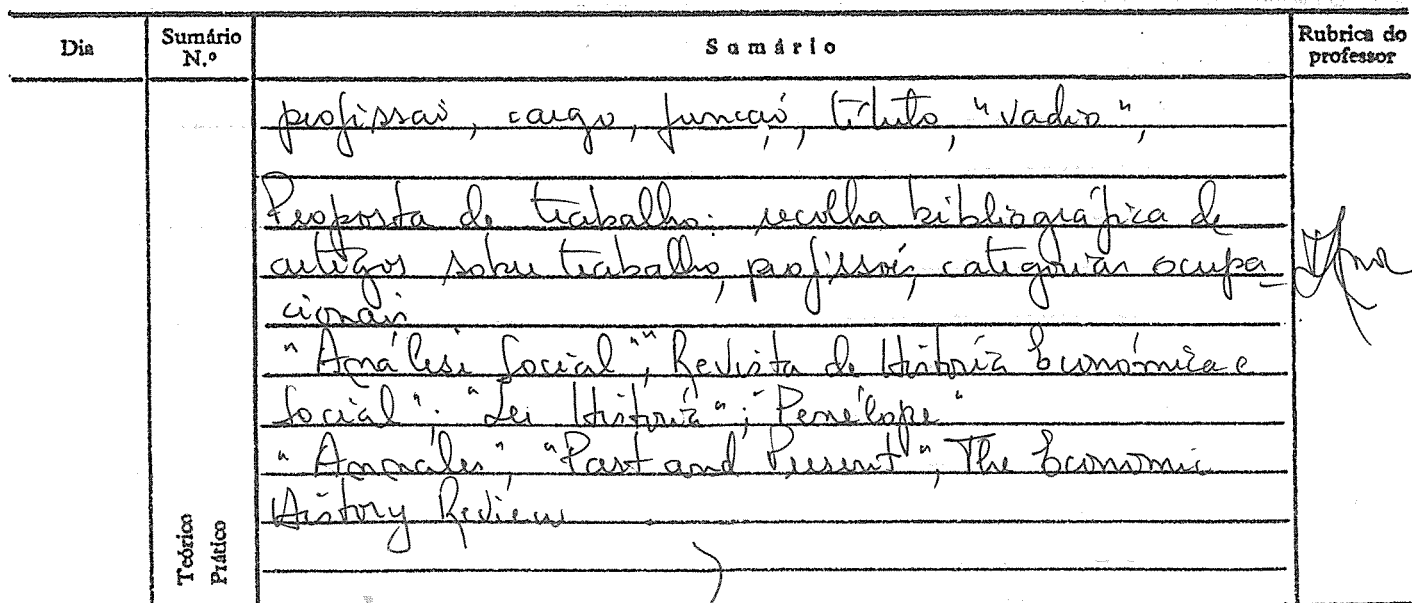 Dia
Sumário N.º
Sumário
Rubrica do professor
profissão, cargo, função, título, "vadio",
Proposta de trabalho: recolha bibliográfica de
artigos sobre trabalho, profissões, categorias ocupa-
cionais
"Análise Social"; "Revista de História Económica e
Social"; "Ler História"; "Penélope"
"Annales", "Past and Present", The Economic
History Review
Teórico
Prático